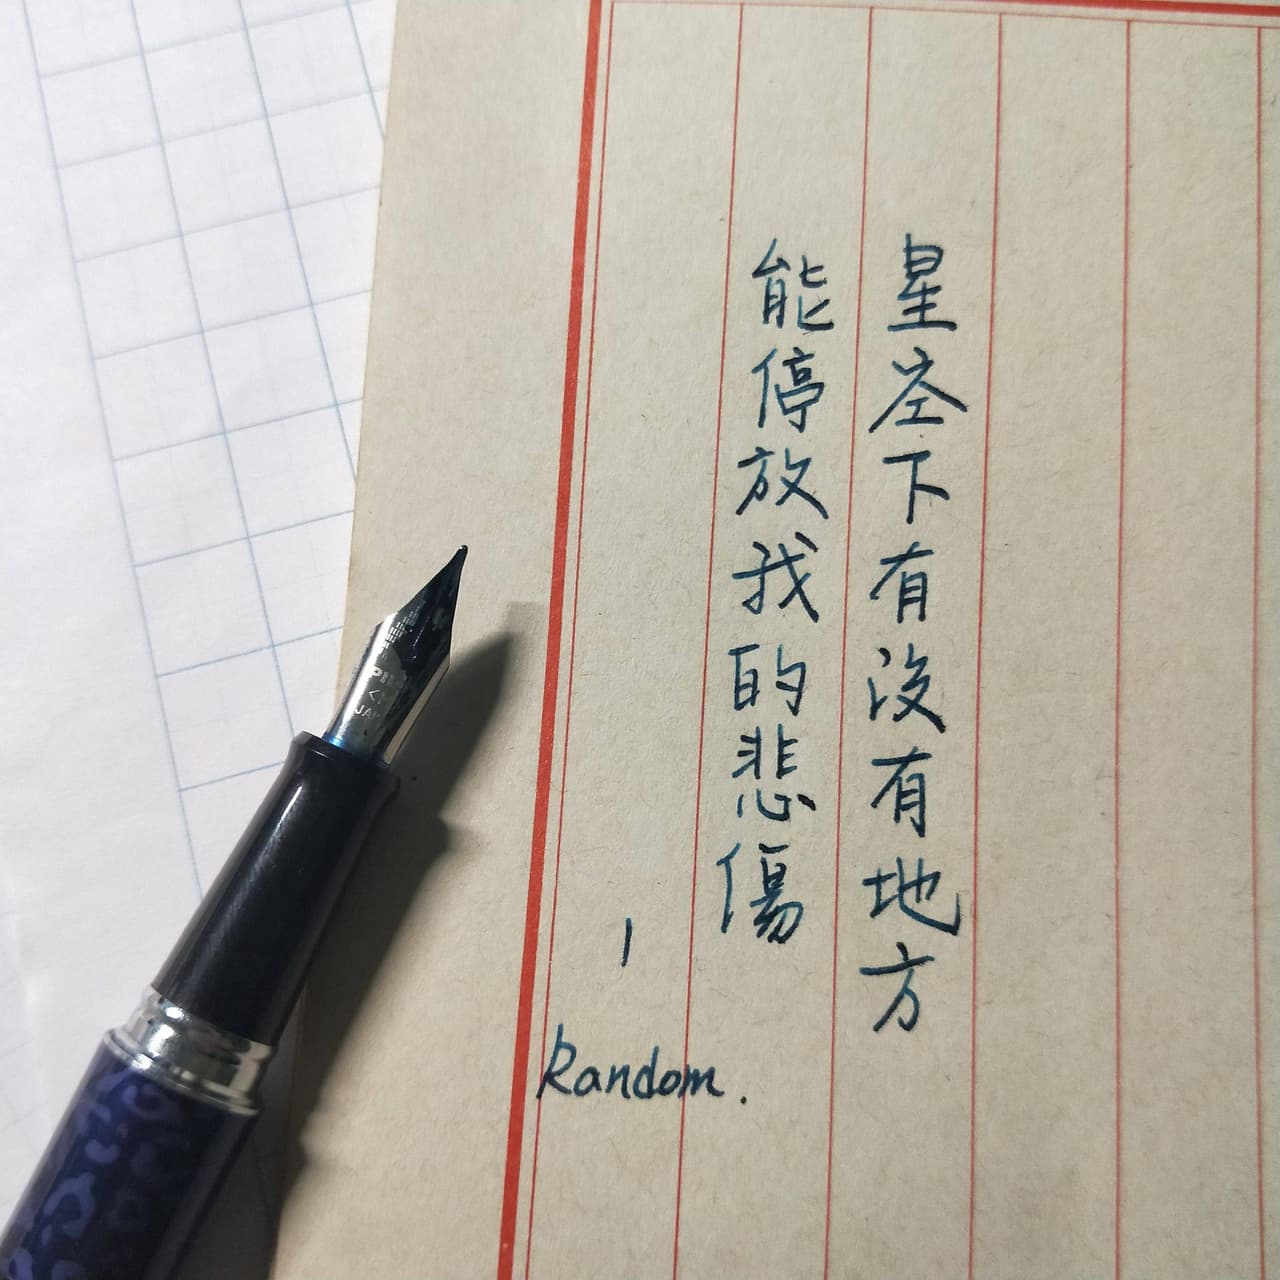 星空下有沒有地方
能停放我的悲傷
—
Random.